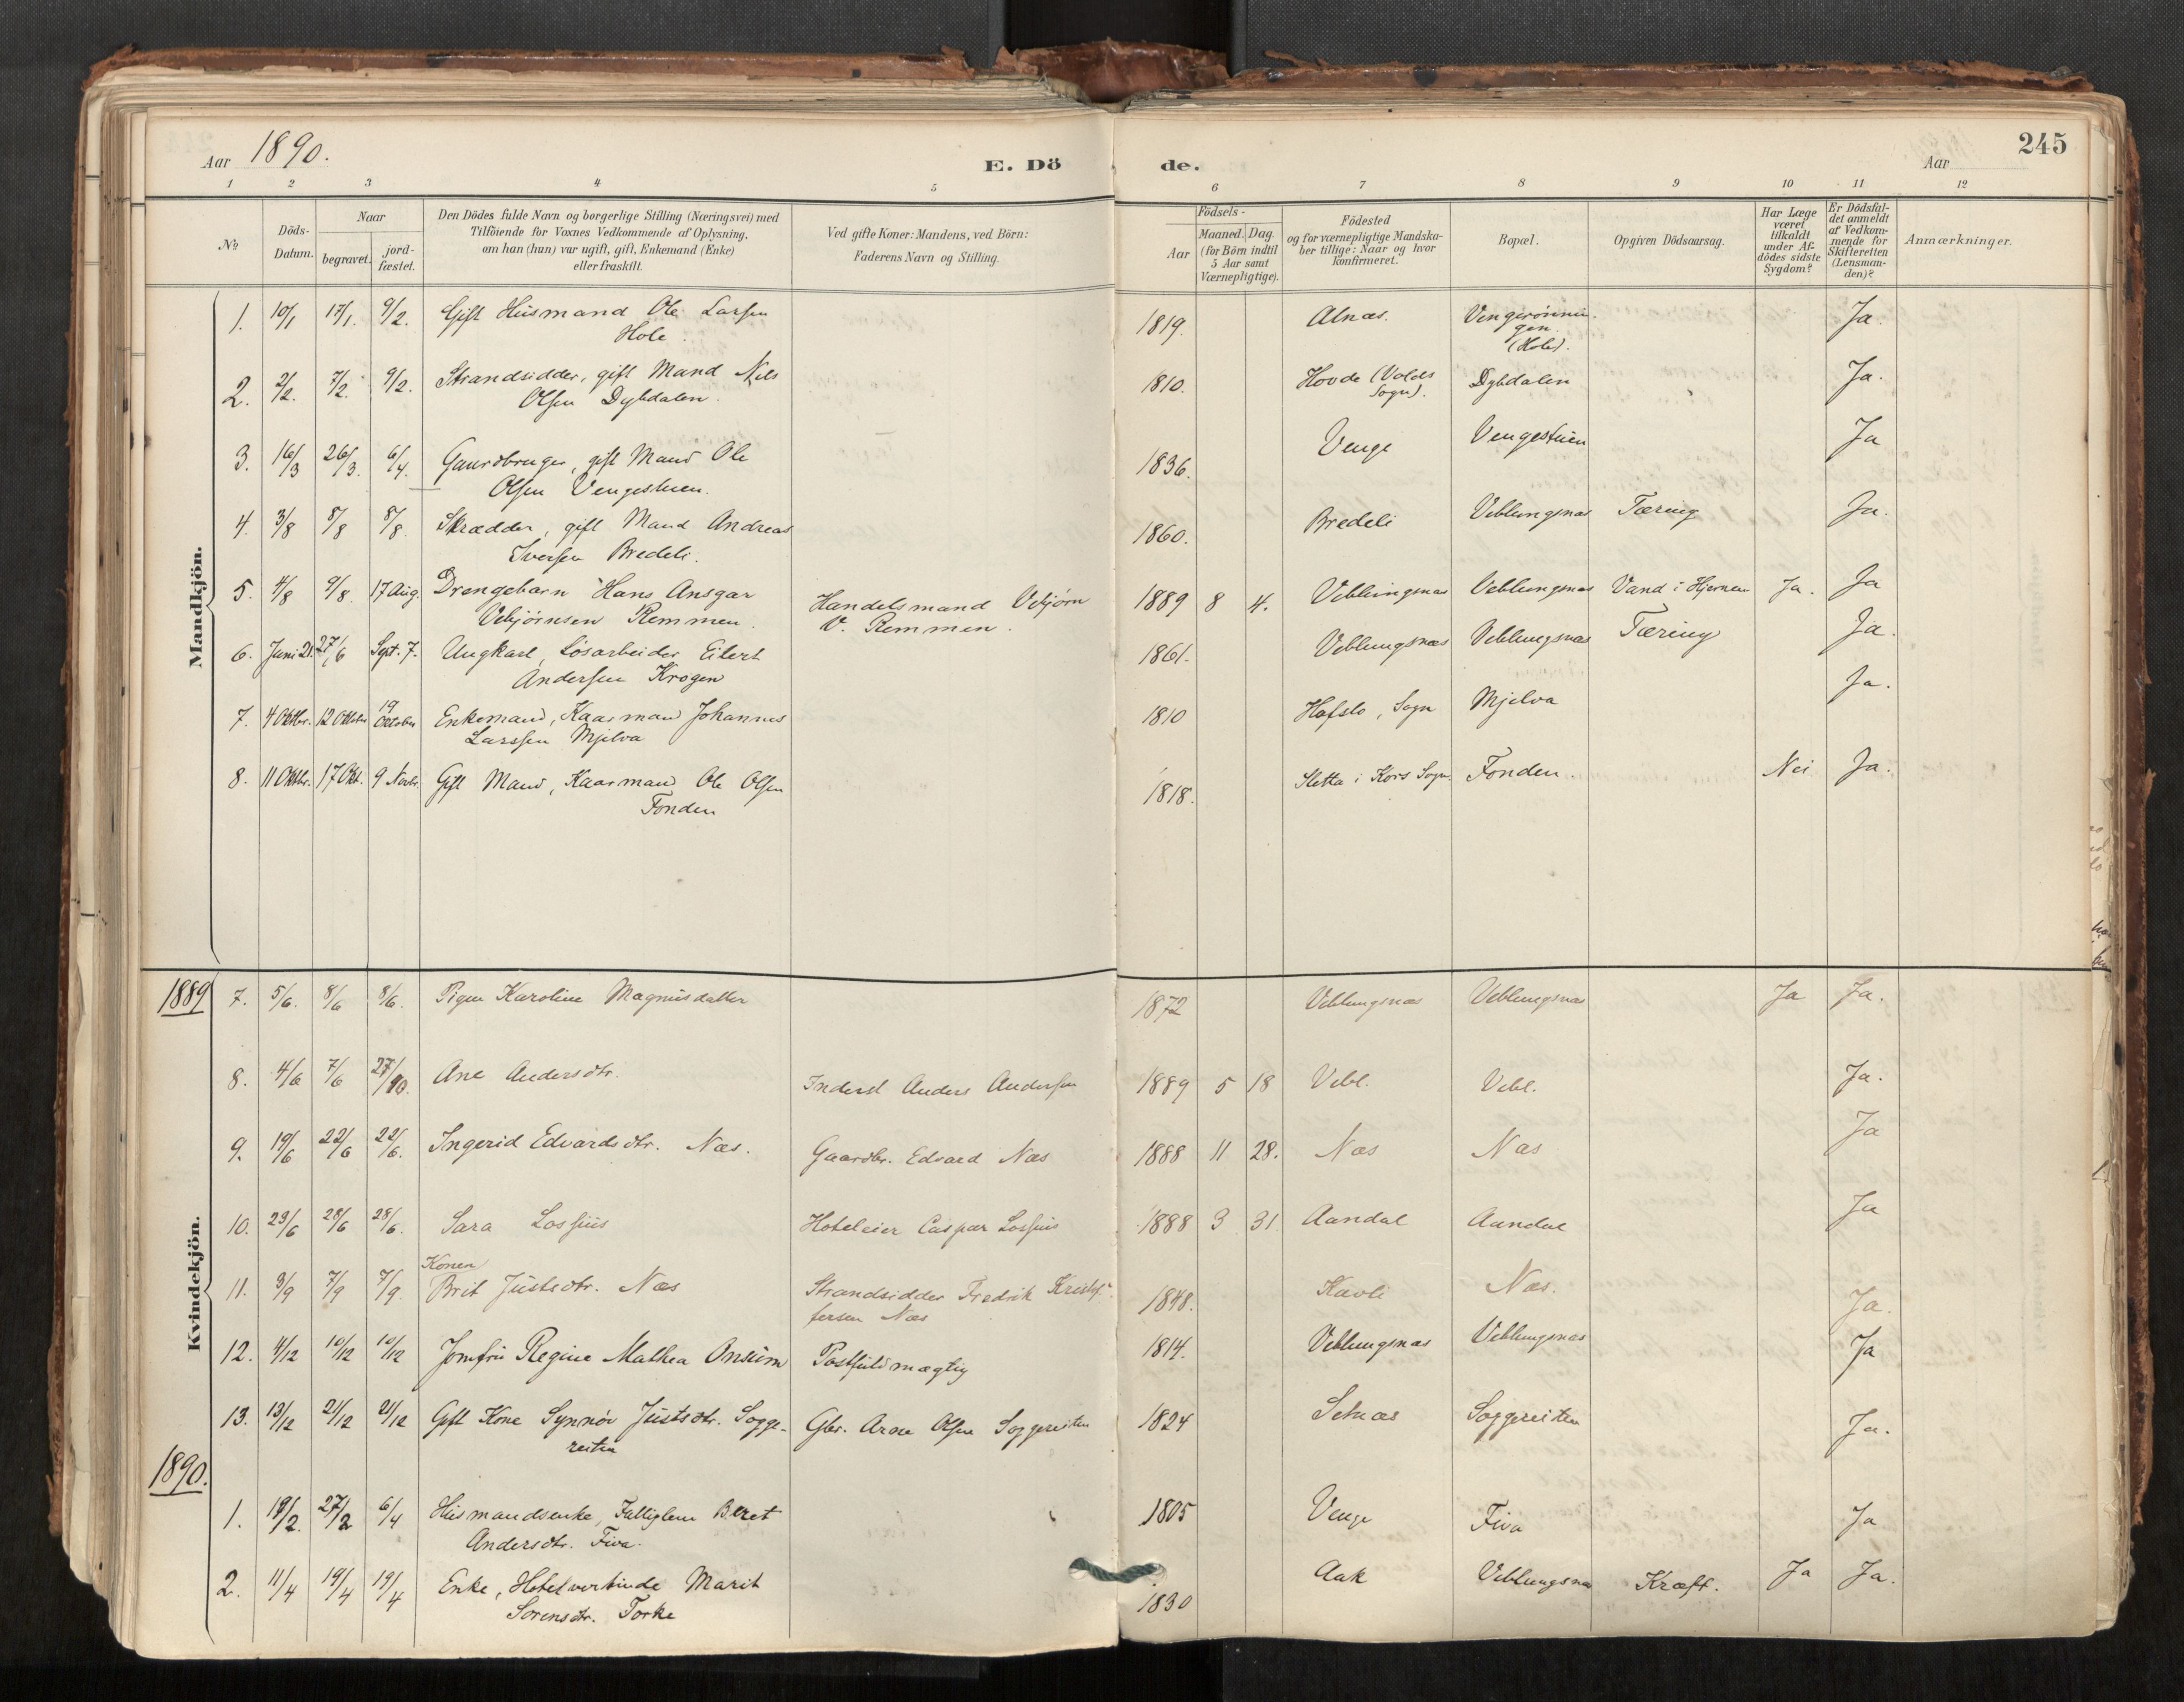 Aar 1890.
E. Döde.
Aar
245
1 2 3 4 5 6 7 8 9 10 11 12
No
Döds-Datum.
Naar
begravet.
jord-fæstet.
Den Dödes fulde Navn og borgerlige Stilling (Næringsvei) med
Tilföiende for Voxnes Vedkommende af Oplysning,
om han (hun) var ugift, gift, Enkemand (Enke)
eller fraskilt.
Ved gifte Koner: Mandens, ved Börn:
Faderens Navn og Stilling.
Födsels-
Aar
Maaned. Dag.
(for Börn indtil
5 Aar samt
Værnepligtige).
Födested
og for værnepligtige Mandska-
ber tillige: Naar og hvor
konfirmeret.
Bopæl.
Opgiven Dödsaarsag.
Har Læge
været
tilkaldt
under Af-
dödes sidste
Sygdom?
Er Dödsfal-
det anmeldt
af Vedkom-
mende for
Skifteretten
(Lensman-
den)?
Anmærkninger.
Mandkjön.
1. 10/1 17/1. 9/2. Gift Husmand Ole Larsen 1819. Alnæs. Vengerönnin-
Hole. gen. (Hole). Ja.
2. 2/2. 7/2. 9/2. Strandsidder, gift Mand Nils 1810. Hovde (Volds Dybdalen Ja.
Olsen Dybdalen. Sogn).
3. 16/3 26/3. 6/4. Gaardbruger, gift Mand Ole 1836. Venge Vengestuen Ja
Olsen Vengestuen.
4. 3/8 8/8 8/8. Skrædder, gift Mand Andreas 1860. Bredeli Veblungsnæs Tæring Ja.
Iversen Bredeli.
5. 4/8 9/8. 17 Aug. Drengebarn Hans Ansgar Handelsmand Vebjörn 1889 8 4. Veblungsnæs Veblungsnæs Vand i Hjernen Ja. Ja
Vebjörnsen Remmen. V. Remmen.
6. Juni 21. 27/6 Sept. 7. Ungkarl, Lösarbeider Eilert 1861. Veblungsnæs Veblungsnæs Tæring Ja.
Andersen Krogen
7. 4 Oktbr. 12 Oktober 19 Oktober Enkemand, Kaarmand Johannes 1810 Hafslo, Sogn Mjelva Ja.
Larssen Mjelva
8. 11 Oktbr. 17 Okt. 9 Novbr. Gift Mand, Kaarmand Ole Olsen 1818. Sletta i Kors Sogn. Fonden. Nei Ja.
Fonden
Kvindekjön.
1889
7. 5/6. 8/6 8/6. Pigen Karoline Magnusdatter 1872 Veblungsnæs Veblungsnæs Ja Ja.
8. 4/6 7/6 27/10. Ane Andersdtr. Inderst Anders Andersen 1889 5 18 Vebl. Vebl. Ja.
9. 19/6 22/6 22/6. Ingerid Edvardsdtr. Næs. Gaardbr. Edvard Næs 1888 11 28. Næs Næs Ja
10. 23/6 28/6 28/6. Sara Lossius Hoteleier Caspar Lossius 1888 3 31. Aandal Aandal Ja
Konen
11. 3/9 7/9 7/9. Brit Justsdtr. Næs Strandsidder Fredrik Kristof- 1848. Kavli Næs. Ja.
fersen Næs
12. 4/12 10/12 10/12 Jomfru Regine Mathea Onsum Postfuldmægtig 1814. Veblungsnæs Veblungsnæs Ja
13. 13/12 21/12 21/12 Gift Kone Synnöv Justsdtr. Sogge- Gbr. Arne Olsen Soggereiten 1824 Setnæs Soggereiten Ja.
reiten
1890.
1. 19/2. 27/2 6/4 Husmandsenke, Fattiglem Beret 1805 Venge Fiva Ja
Andersdtr. Fiva.
2. 11/4 19/4 19/4 Enke, Hotelvertinde Marit 1830 Aak Veblungsnæs Kræft. Ja Ja.
Sörensdtr. Torke